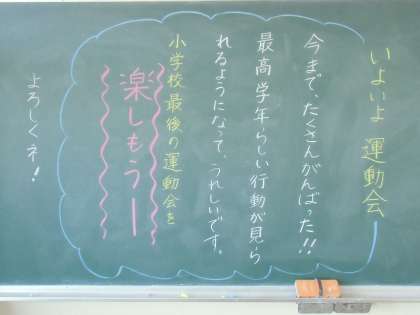 いよいよ運動会
今まで、たくさんがんばった!!
最高学年らしい行動が見ら
れるようになって、うれしいです。
小学校最後の運動会を
楽しもうー
よろしくネ!